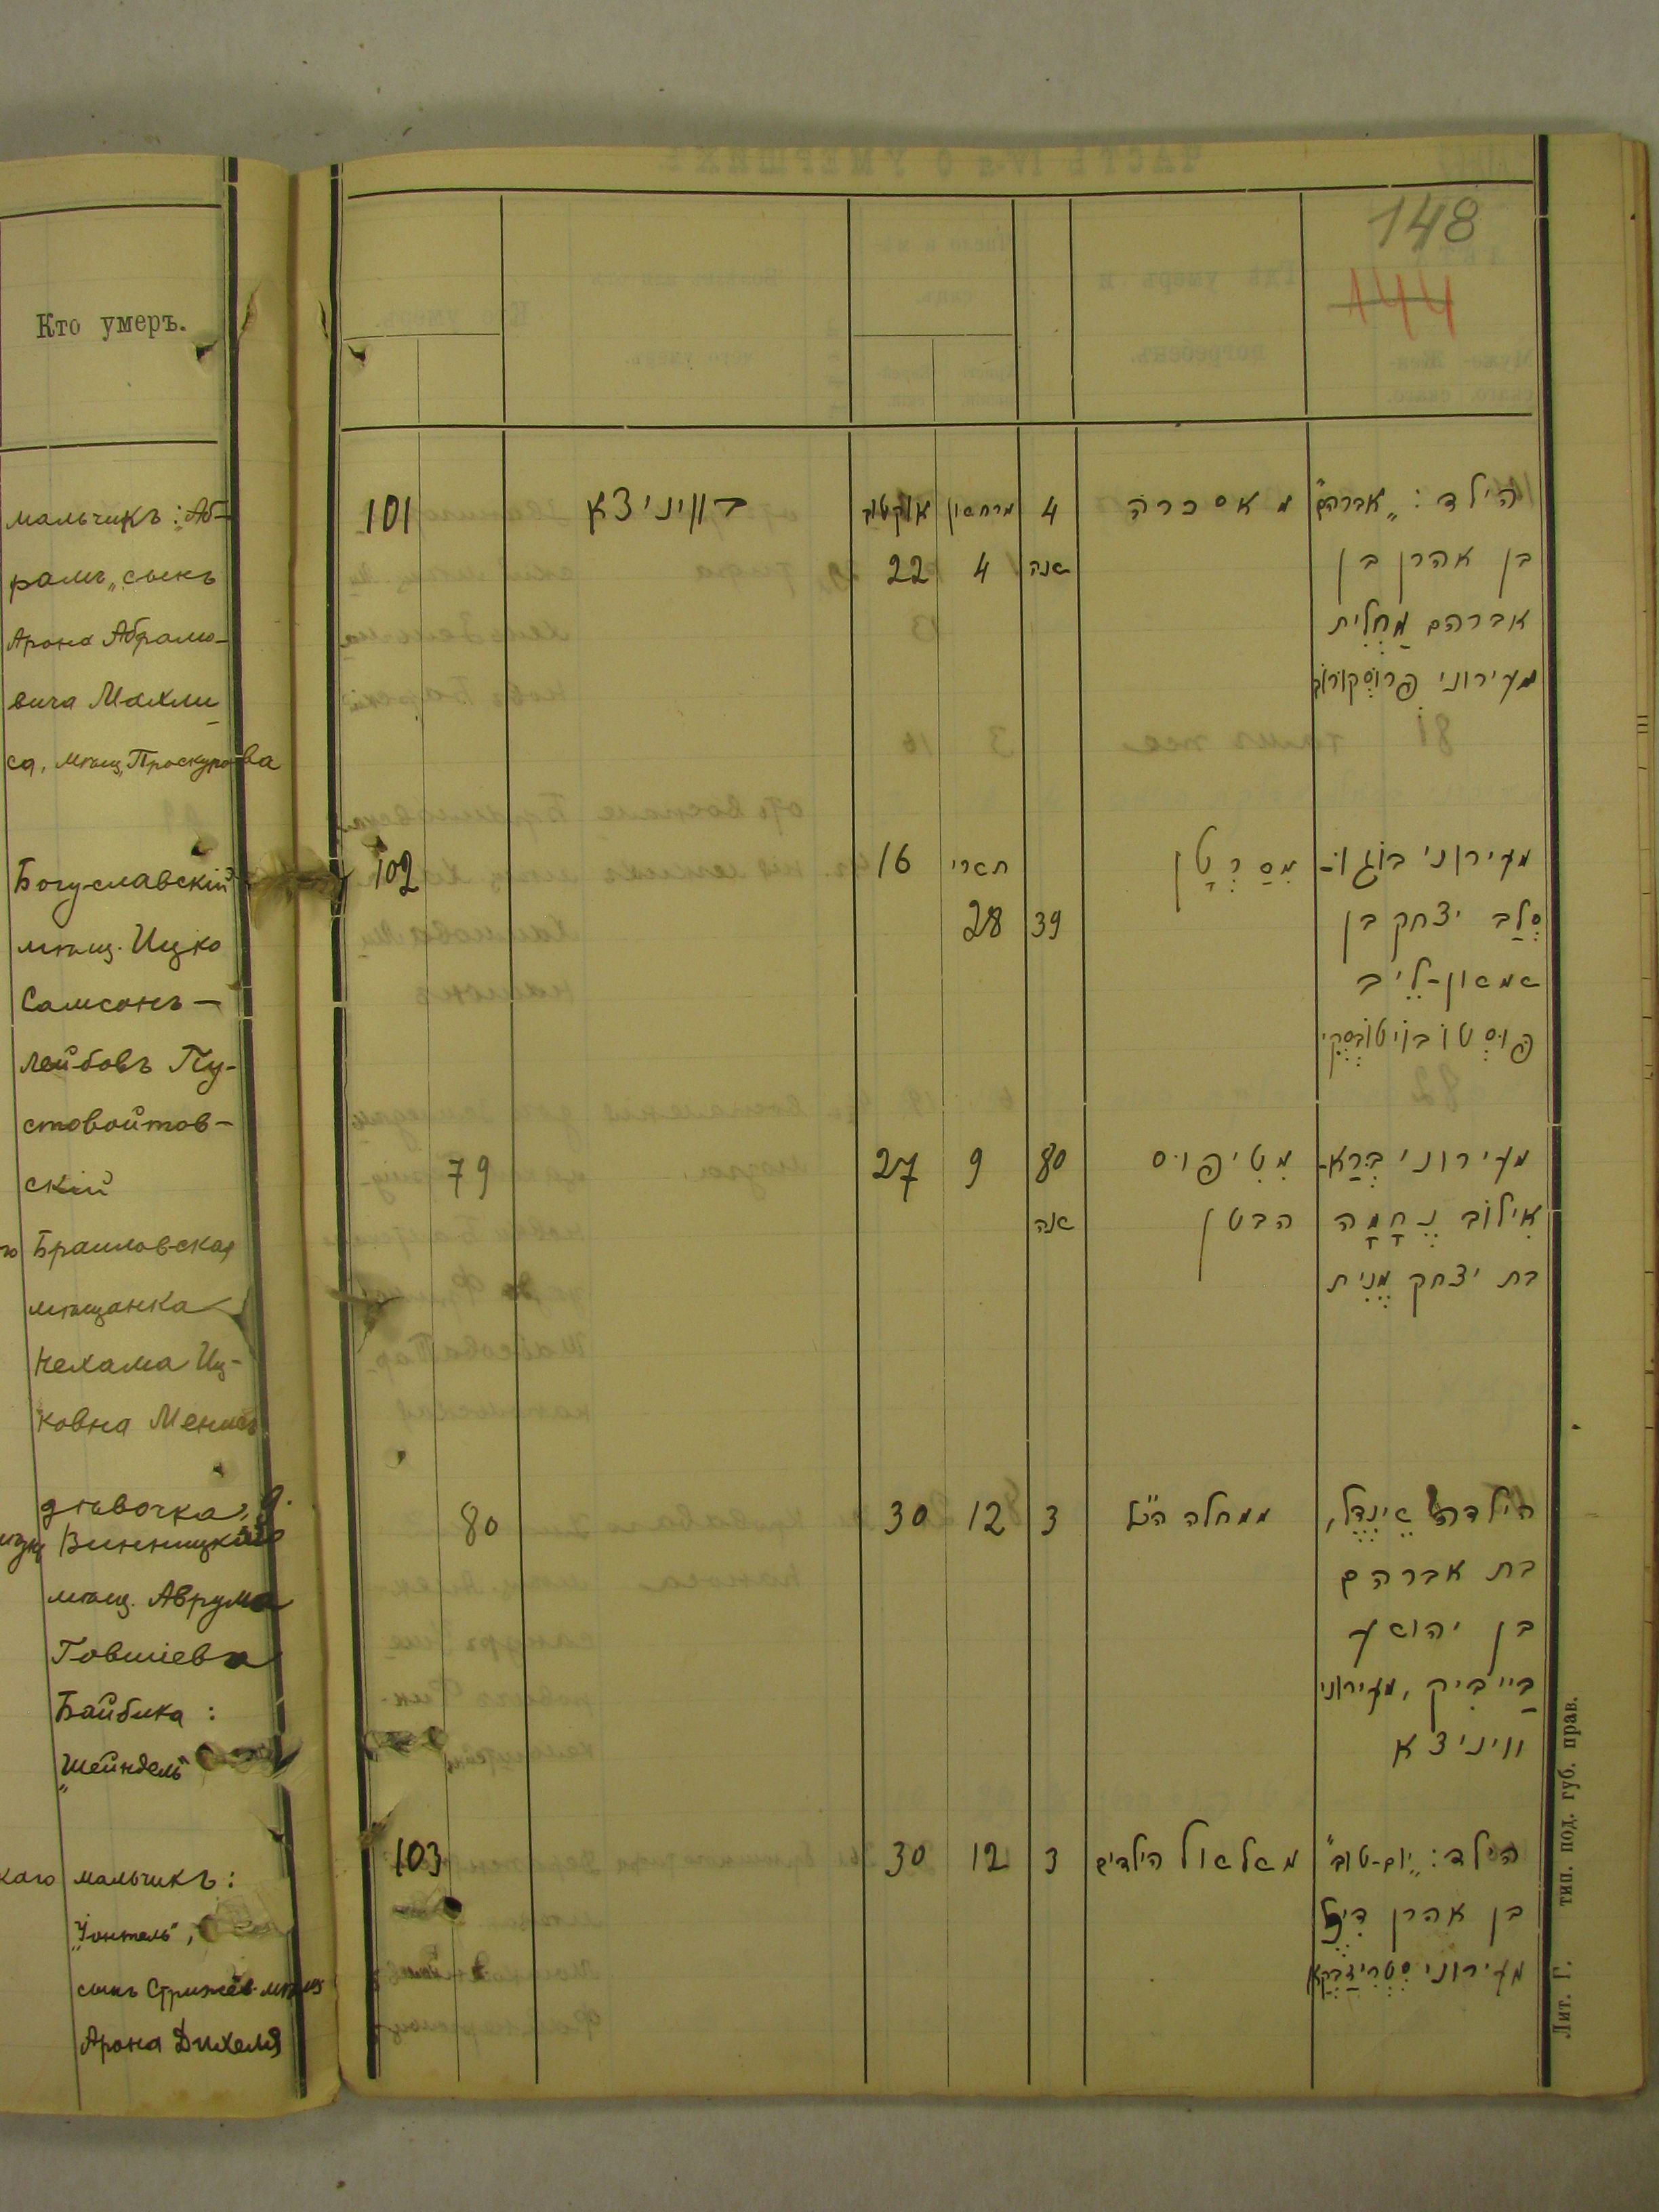 Кто умеръ.
мальчикъ: „Аб-
рамъ„ сынъ
Арона Абрамо-
вича Махли
са, мѣщ. Проскурова
Богуславскій
мѣщ. Ицко
Самсонъ-
Лейбовъ Пу-
стовойтов-
скій
Браиловская
мѣщанка
Нехама Иц-
ковна Менисъ
дѣвочка, д.
Винницкаго
мѣщ. Аврума
Говшіева
Байбика :
„Шейндель"
мальчикъ:
„Іонтель",
сынъ Стрижев. мѣщ
Арона Дихеля
148
144
101 בוויניצא אוקטוב מרחשון 4 מאסכרה הילד: „אברהם"
22 4 שנה בן אהרן בן
אברהם מַחְלִית
מעירוני פרוסקורוב
102 16 תשרי מִסַרְטָן מעירוני בוֹגוּ-
28 39 סְלַב יצחק בן
שמשון-לֵיב
פוּסְטוֹבוֹיטוֹבְסְקִי
79 27 9 80 מִטִיפוּס מעירוני בְּרַא-
שנה הבטן אִילוֹב נֶחָמָה
בת יצחק מֶנִית
80 30 12 3 ממחלה הנ"ל הילדה שֵינְדֶל,
בת אברהם
בן יהושע
בַּייבִּיק, מעירוני
וויניצא
103 30 12 3 משלשול הילדים הילד: „יום-טוב"
בן אהרן
מעירוני
Лит. Г. тип. под. губ. прав.